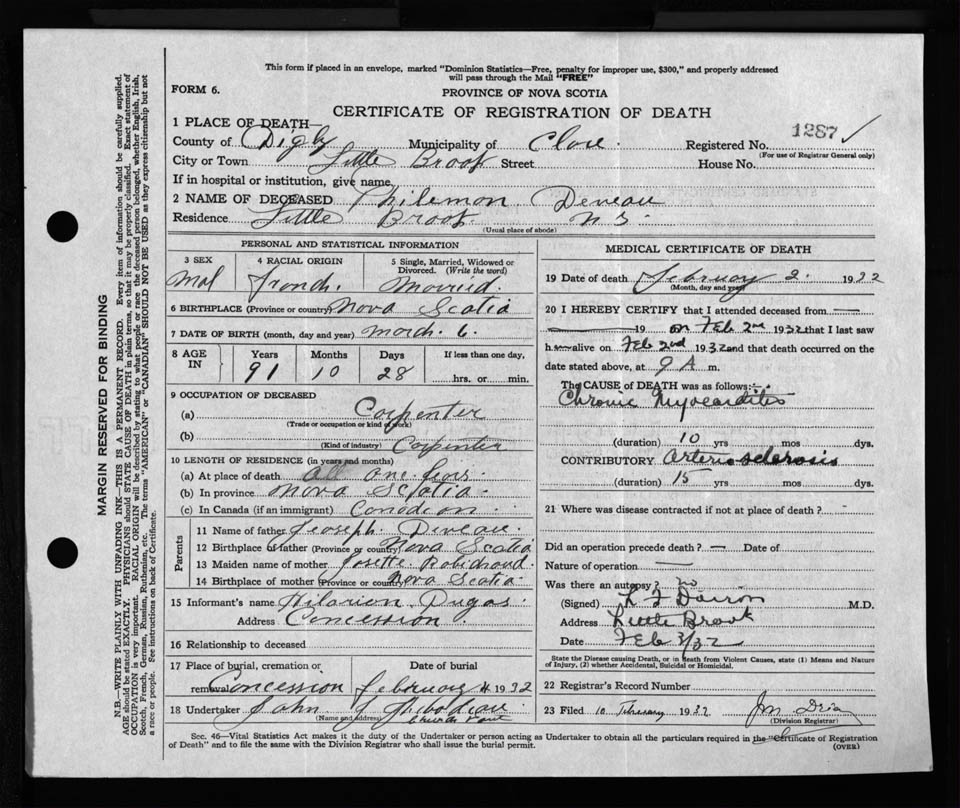 This form if placed in an envelope, marked "Dominion Statistics—Free, penalty for improper use, $300," and properly addressed
will pass through the Mail "FREE"
FORM 6.
PROVINCE OF NOVA SCOTIA
CERTIFICATE OF REGISTRATION OF DEATH
1 PLACE OF DEATH—
County of Digby Municipality of Clare. Registered No. 1287
(For use of Registrar General only)
City or Town Little Brook Street House No.
If in hospital or institution, give name
2 NAME OF DECEASED Philemon Deveau
Residence Little Brook. N S.
(Usual place of abode)
PERSONAL AND STATISTICAL INFORMATION
3 SEX 4 RACIAL ORIGIN 5 Single, Married, Widowed or
Divorced. (Write the word)
Mal French. Married.
6 BIRTHPLACE (Province or country) Nova Scotia
7 DATE OF BIRTH (month, day and year) March. 6.
8 AGE IN Years Months Days If less than one day,
91 10 28 hrs. or min.
9 OCCUPATION OF DECEASED
(a) Carpenter
(Trade or occupation or kind of work)
(b) Carpenter
(Kind of industry)
10 LENGTH OF RESIDENCE (in years and months)
(a) At place of death All
(b) In province Nova Scotia
(c) In Canada (if an immigrant) Canadian
Parents
11 Name of father Deveau.
12 Birthplace of father (Province or country) Nova Scotia
13 Maiden name of mother Josette Robichaud
14 Birthplace of mother (Province or country) Nova Scotia
15 Informant's name Hilarion Dugas.
Address Concession.
16 Relationship to deceased
17 Place of burial, cremation or Date of burial
removal Concession February 4 1932
18 Undertaker John Thibodeau
(Name and address) Church Point
MEDICAL CERTIFICATE OF DEATH
19 Date of death February 2. 1932
(Month, day and year)
20 I HEREBY CERTIFY that I attended deceased from —
19 on Feb 2nd 1932 that I last saw
h alive on Feb 2nd 1932 and that death occurred on the
date stated above, at 9 A m.
The CAUSE of DEATH was as follows:—
Chronic Myocarditis
(duration) 10 yrs mos dys.
CONTRIBUTORY Arteriosclerosis
(duration) 15 yrs mos dys.
21 Where was disease contracted if not at place of death?
Did an operation precede death? — Date of
Nature of operation —
Was there an autopsy? no
(Signed) M.D.
Address Little Brook
Date Feb 3/32
State the Disease causing Death, or in death from Violent Causes, state (1) Means and Nature
of Injury, (2) whether Accidental, Suicidal or Homicidal.
22 Registrar's Record Number
23 Filed 10 February 1932
(Division Registrar)
Sec. 46—Vital Statistics Act makes it the duty of the Undertaker or person acting as Undertaker to obtain all the particulars required in the "Certificate of Registration
of Death" and to file the same with the Division Registrar who shall issue the burial permit.
(OVER)
MARGIN RESERVED FOR BINDING
N.B.—WRITE PLAINLY WITH UNFADING INK—THIS IS A PERMANENT RECORD. Every item of information should be carefully supplied.
AGE should be stated EXACTLY. PHYSICIANS should STATE CAUSE OF DEATH in plain terms, so that it may be properly classified. Exact statement of
OCCUPATION is very important. RACIAL ORIGIN will be described by stating to what people or race the deceased person belonged, whether English, Irish,
Scotch, French, German, Russian, Ruthenian, etc. The terms "AMERICAN" or "CANADIAN" SHOULD NOT BE USED as they express citizenship but not
a race or people. See instructions on back of Certificate.